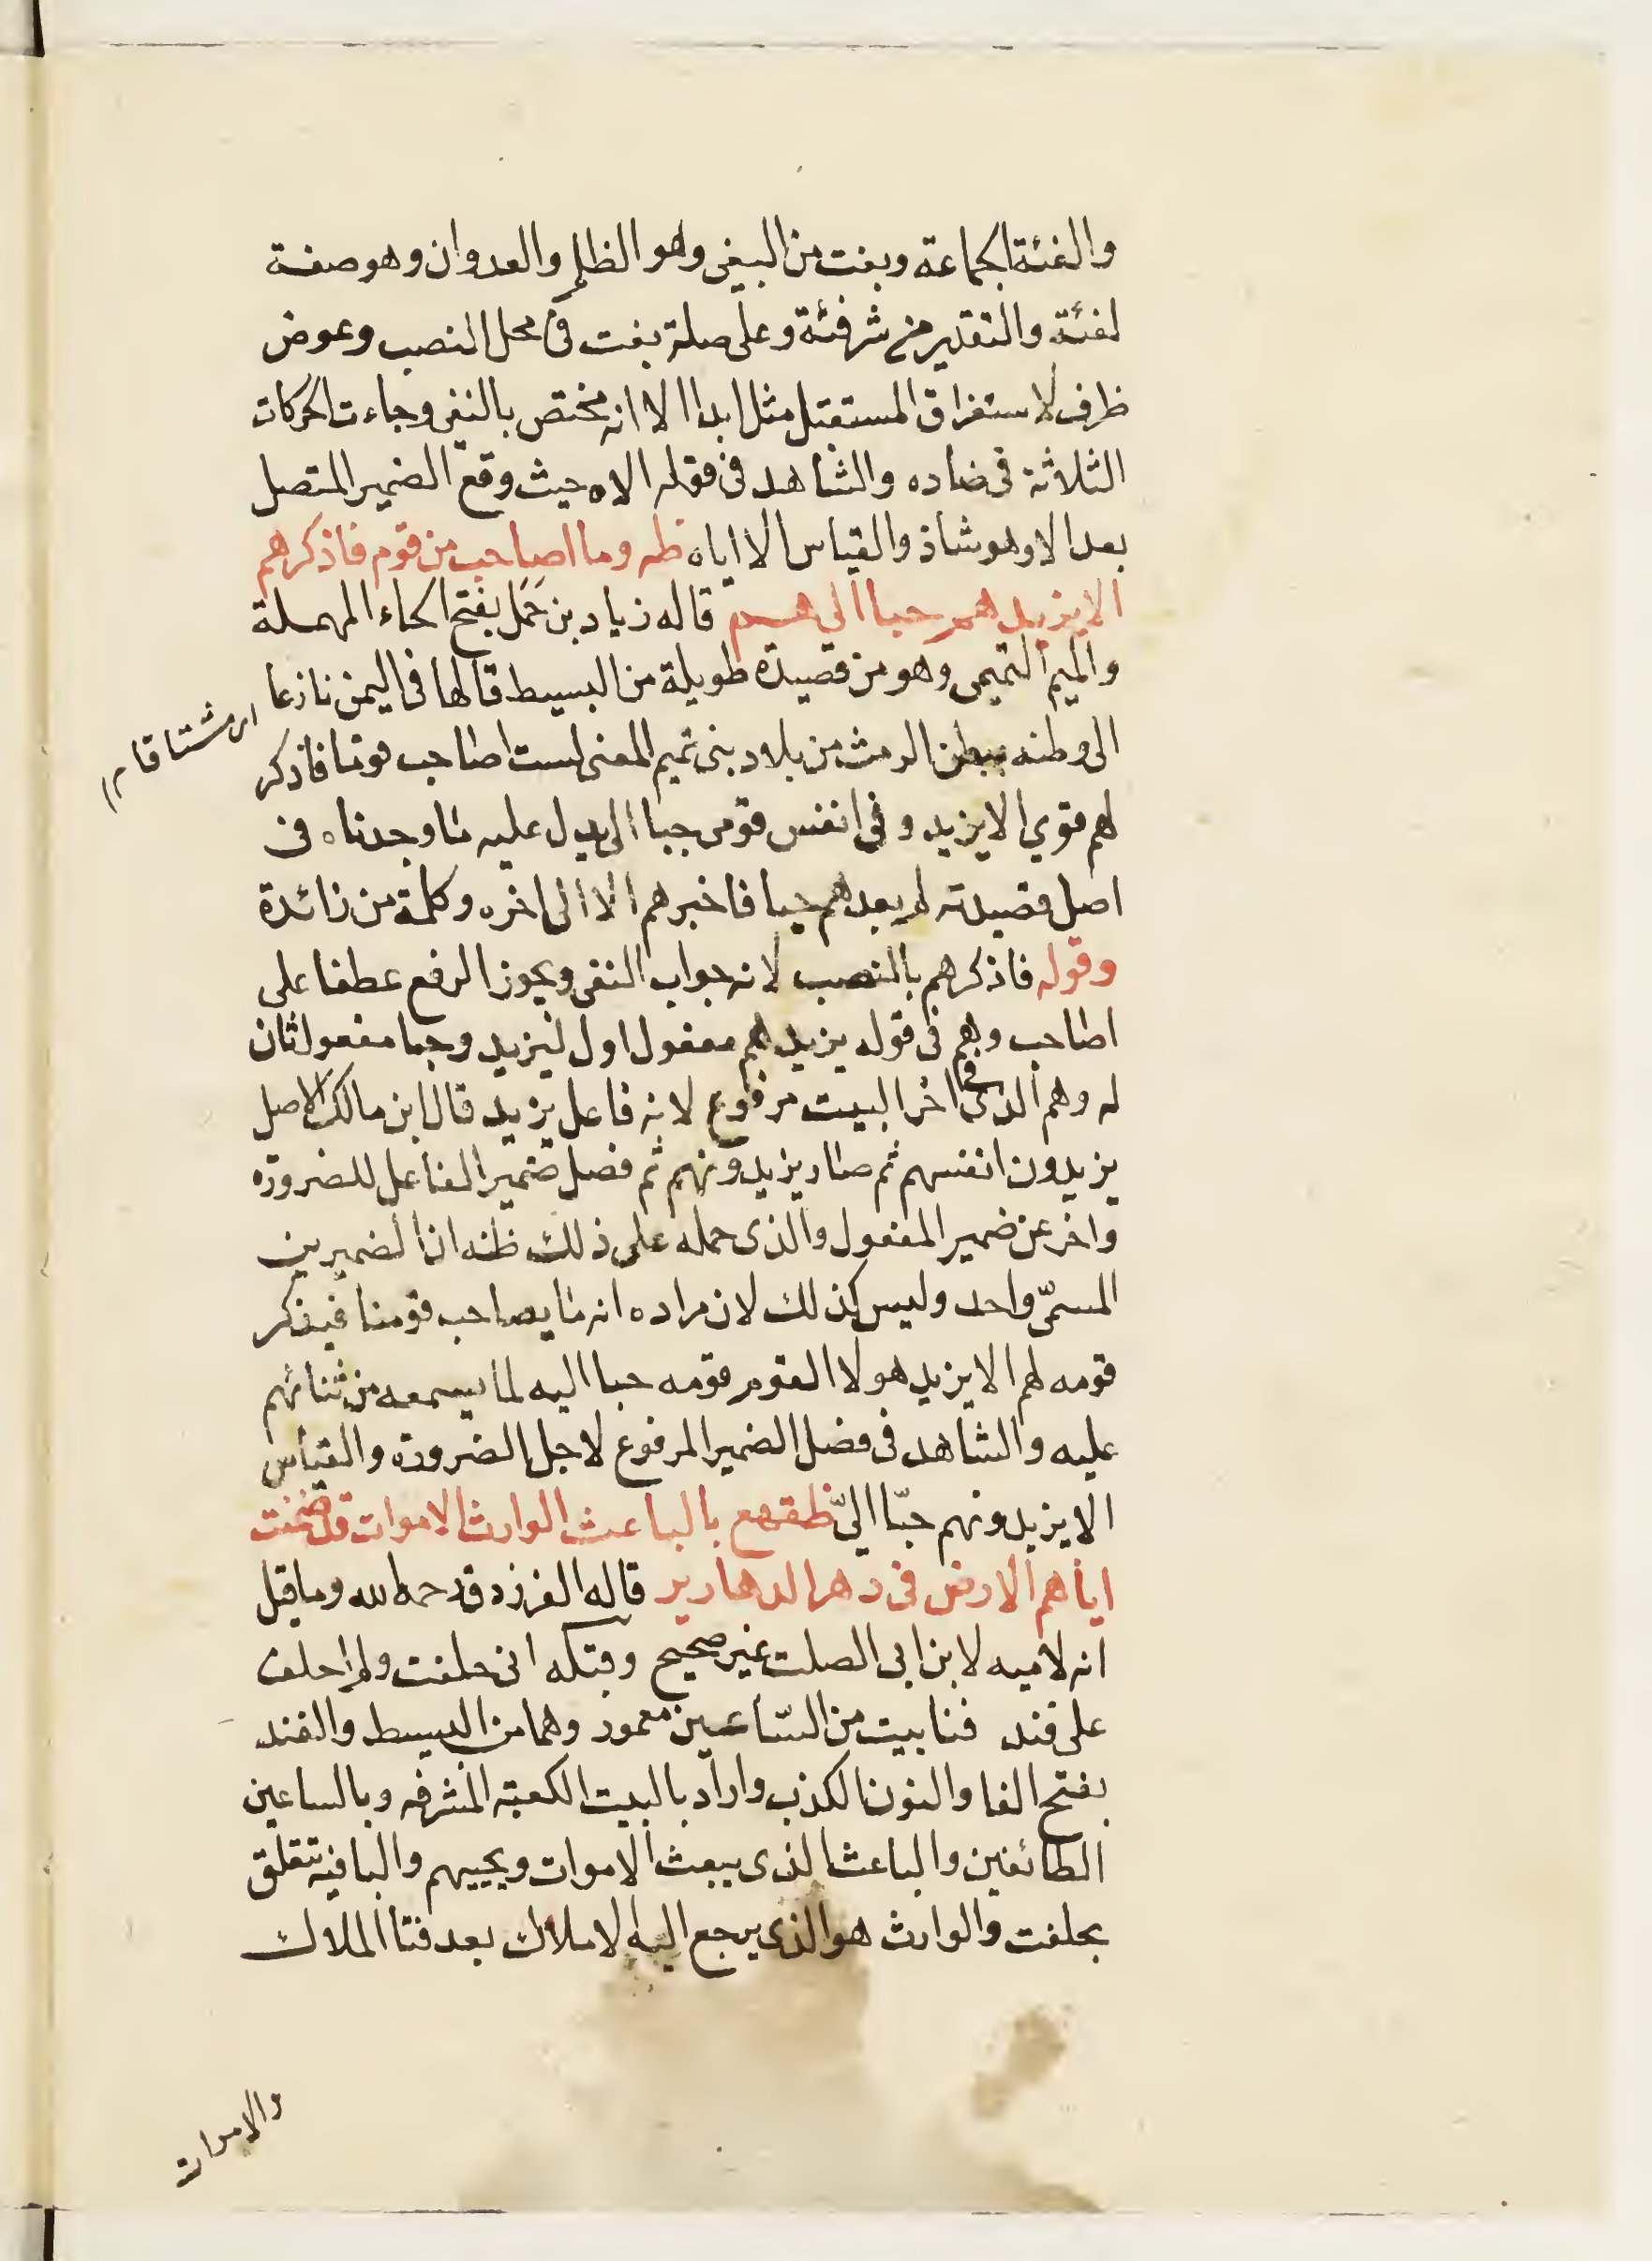 والفئة الجماعة وبغت من البغى وهو الظلم والعدوان وهو صفة
لفئة والتقدير من شر فئة وعلى صلة بغت فى محل النصب وعوض
ظرف لاستغراق المستقبل مثل ابدا الا انه مختص بالنفى وجاءت الحركات
الثلاثة فى ضاده والشاهد فى قوله الاه حيث وقع الضمير المتصل
بعد الا وهو شاذ والقياس الا اياه ظه وما اصاحب من قوم فاذكرهم
الا يزيد هم حبا الى هم قاله زياد بن حمل بفتح الحاء المهملة
والميم التميمى وهو من قصيدة طويلة من البسيط قالها فى اليمن نازعا
اى مشتاقا م
الى وطنه ببطن الرمث من بلاد بنى تميم المعنى لست اصاحب قوما فاذكر
لهم قومي الا يزيد وفى انفس قومى حبا الى يدل عليه ما وجدناه فى
اصل قصيدته لم بعدهم حيا فاخبرهم الا الى اخره وكلمة من زائدة
وقوله فاذكرهم بالنصب لانه جواب النفى ويجوز الرفع عطفا على
اصاحب وهم فى قوله يزيدهم مفعول اول ليزيد وحبا مفعول ثان
له وهم الذى فى اخر البيت مرفوع لانه فاعل يزيد قال ابن مالك الاصل
يزيدون انفسهم ثم صار يزيدونهم ثم فصل ضمير الفاعل للضرورة
واخر عن ضمير المفعول والذى حمله على ذلك ظنه ان الضميرين
المسمّى واحد وليس كذلك لان مراده انه ما يصاحب قوما فيذكر
قومه لهم الا يزيد هولا القوم قومه حبا اليه لما يسمعه من ثنائهم
عليه والشاهد فى فصل الضمير المرفوع لاجل الضرورة والقياس
الا يزيدونهم حبّا الىّ ظقهع بالباعث الوارث الاموات قد ضمنت
اياهم الارض فى دهر الدهارير قاله الفرزدق رحمه الله وما قيل
انه لاميه لابن ابى الصلت غير صحيح وقبله انى حلفت ولم احلف
على فند فنا بيت من السّاعين معمور وهما من البسيط والفند
بفتح الفا والنون الكذب واراد بالبيت الكعبة المشرفه وبالساعين
الطائفين والباعث الذى يبعث الاموات ويحييهم والبا فيه تتعلق
بحلفت والوارث هو الذى يرجع اليه الاملاك بعد فنا الملاك
والاموات